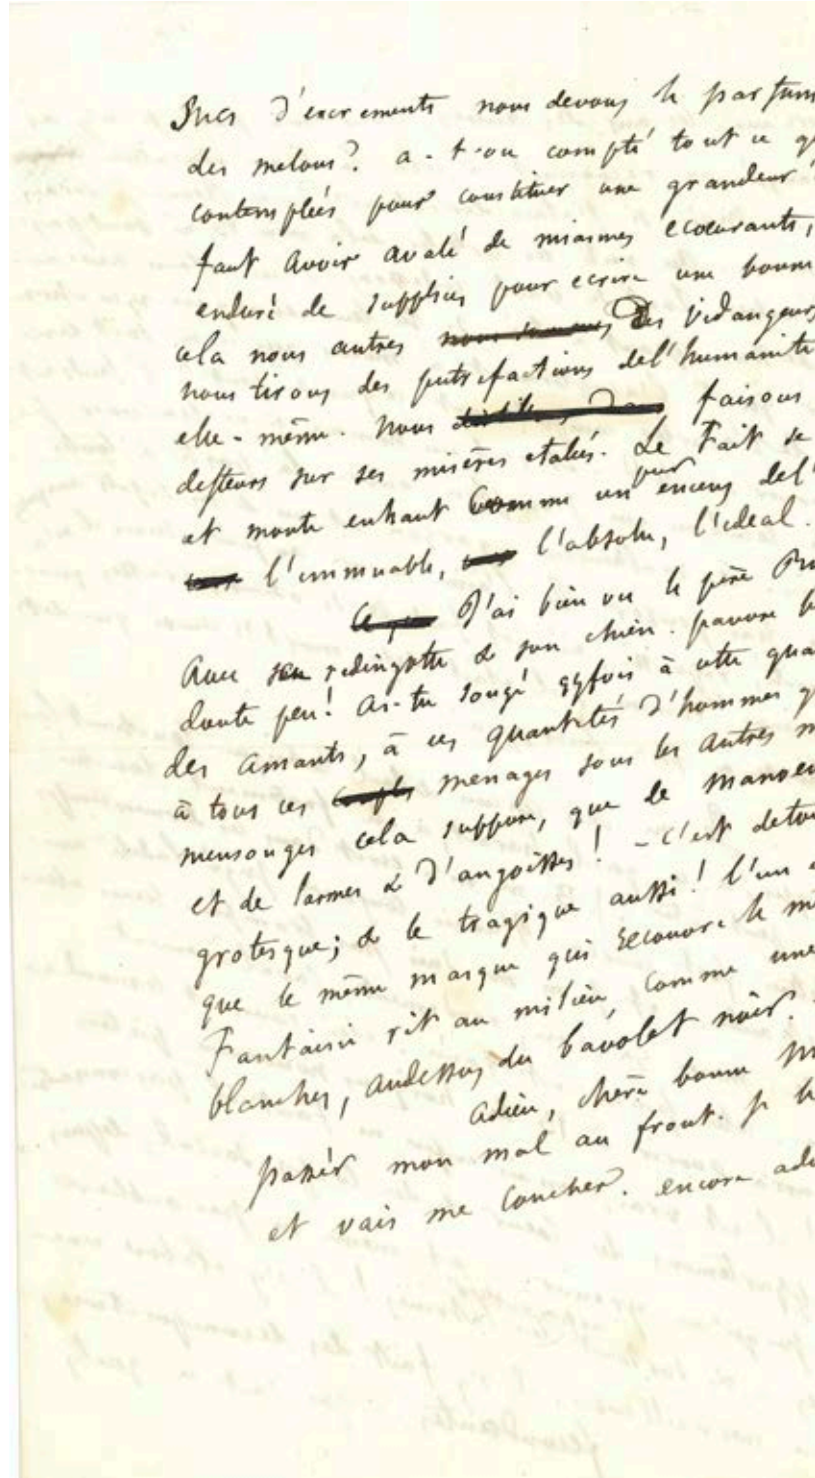 Sucs d'excrements nous devons le parfum
des melons? a-t-on compté tout ce q
contemplées pour constituer une grandeur
faut avoir avalé de miasmes ecœurants,
enduré de supplices pour ecrire une bonne
cela nous autres des Vidangeurs
nous tirons des putrefactions de l'humanité
elle-même. Nous faisons
des fleurs sur ses misères etalées. Le Fait se
et monte en haut comme un pur encens de l'
l'immuable, l'absolu, l'ideal.
J'ai bien vu le père
Avec sa redingotte & son chien. pauvre
doute peu! As-tu songé qqfois à cette qua
des amants, à ces quantités d'hommes q
à tous ces menages sous les autres m
mensonges cela suppose, que de manoeu
et de larmes & d'angoisses! - C'est de tou
grotesque; & le tragique aussi! l'un
que le même masque qui recouvre le m
Fantaisie rit au milieu, comme une
blanches, au dessus du bavolet noir.
adieu, chère bonne M
passer mon mal au front. je
et vais me coucher. encore adi